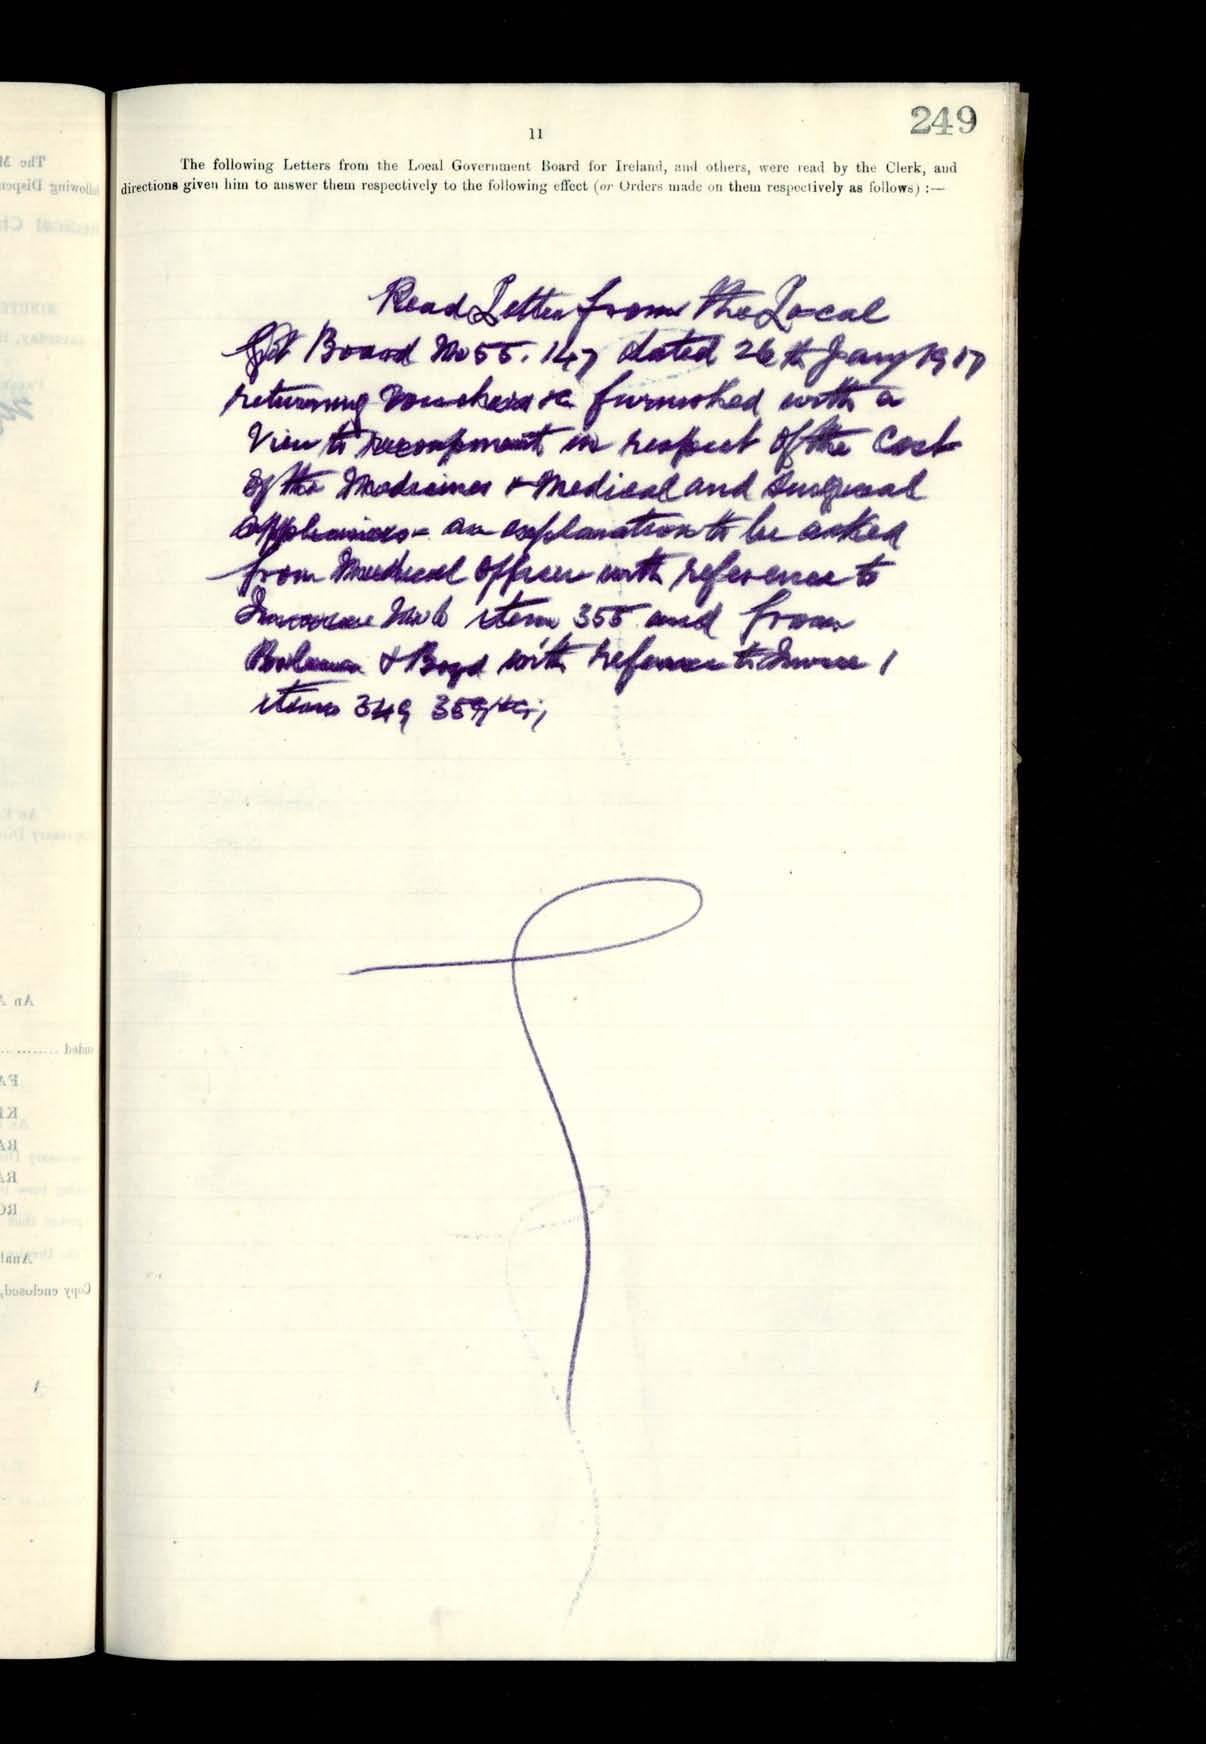 249
11
The following Letters from the Local Government Board for Ireland, and others, were read by the Clerk, and
directions given him to answer them respectively to the following effect (or Orders made on them respectively as follows) :—
Read Letter from the Local
Govt Board No 55.147 dated 26th Jany 1917
returning vouchers &c furnished with a
view to recoupment in respect of the cost
of the Medicines & Medical and Surgical
appliances - an explanation to be asked
from Medical Officer with reference to
Invoice No 6 item 355 and from
& Boyd with reference to Invoice 1
items 349 359